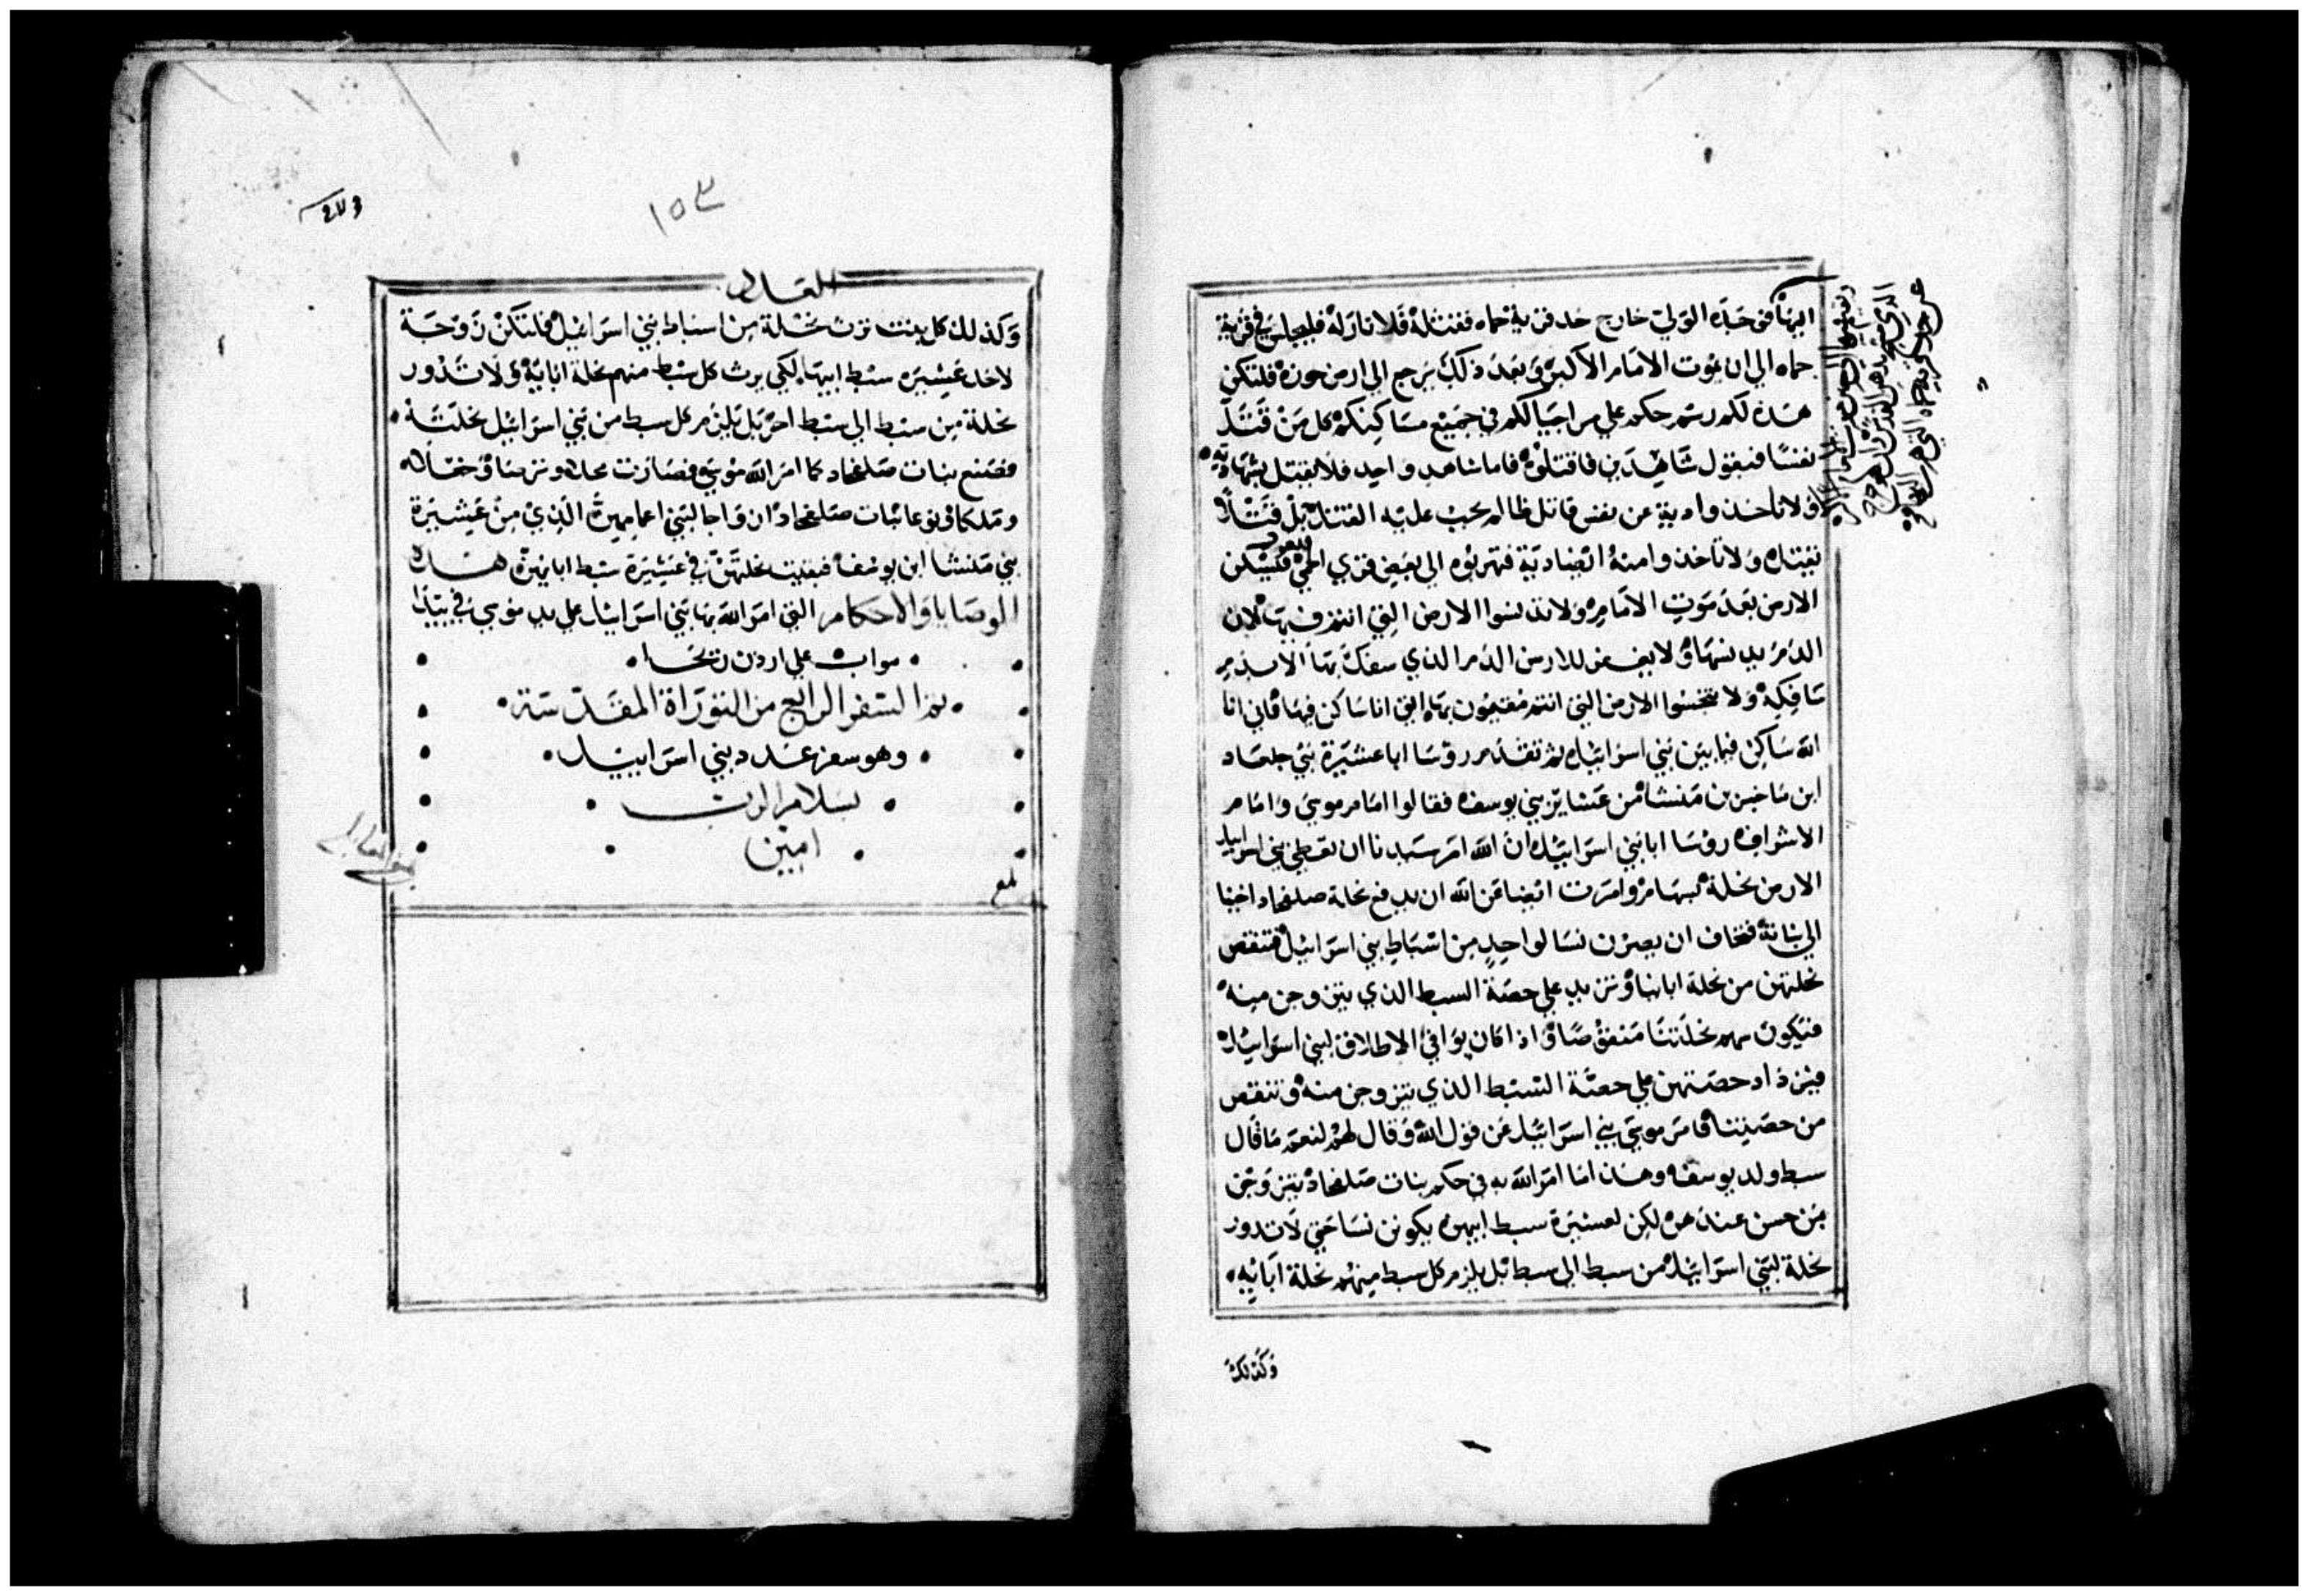 حماه الي ان يموت الامام الاكبر وبعد ذلك يرجع الي ارض حوزه فلتكن
هذه لكم رسم حكم علي مر اجيالكم في جميع مساكنكم كل من قتل
نفسا فبقول شاهدين فاقتلوه فاما شاهد واحد فلا يقتل بشهادته
ولا تاخذوا دية عن نفس قاتل ظالم يجب عليه القتل بل قتلا
يقتل ولا تاخذوا منه ايضا دية فتهربوه الي بعض قري الحمي فيسكن
الارض بعد موت الامام ولا تدنسوا الارض التي انتم فيها لان
الدم يدنسها ولا يغفر للارض الدم الذي سفك بها الا بدم
سافكه ولا تنجسوا الارض التي انتم مقيمون بها التي انا ساكن فيها فاني انا
الله ساكن فيما بين بني اسرائيل ثم تقدم روسا ابا عشيرة بني جلعاد
ابن ماخير بن منشا من عشاير بني يوسف فقالوا امام موسي وامام
الاشراف روسا ابا بني اسرائيل ان الله امر سيدنا ان تعطي بني اسرائيل
الارض نحلة بسهام وامرت ايضا عن الله ان يدفع نحلة صلفحاد اخينا
الي بناته فنخاف ان يصرن نسا لواحد من اسباط بني اسرائيل فتنقص
نحلتهن من نحلة ابائنا وتزيد علي حصة السبط الذي يتزوجن منه
فيكون سهم نحلتنا منقوصا واذا كان يوافي الاطلاق لبني اسرائيل
فيزداد حصتهن علي حصة السبط الذي يتزوجن منه وتنقص
من حصتنا فامر موسي بني اسرائيل عن قول الله وقال لهم لنعم ما قال
سبط ولد يوسف وهذا ما امر الله به في حكم بنات صلفحاد يتزوجن
بمن حسن عندهن لكن لعشيرة سبط ابيهن يكونن نسا حتي لا تدور
نحلة لبني اسرائيل من سبط الي سبط بل يلزم كل سبط منهم نحلة ابائه
وكذلك
١٥٣
وكذلك كل بنت ترث نحلة من اسباط بني اسرائيل فلتكن زوجة
لاحد عشيرة سبط ابيها لكي يرث كل سبط منهم نحلة ابائه ولا تدور
نحلة من سبط الي سبط اخر بل يلزم كل سبط من بني اسرائيل نحلته
فصنع بنات صلفحاد كما امر الله موسي فصارت محلا وترصا وحجله
وملكا ونوعا بنات صلفحاد ازواجا لبني اعمامهن الذي من عشيرة
بني منشا ابن يوسف فبقيت نحلتهن في عشيرة سبط ابائهن هذه
الوصايا والاحكام التي امر الله بها بني اسرائيل علي يد موسي في بيدا
مواب علي اردن ريحا
تم السفر الرابع من التوراة المقدسة
وهو سفر عدد بني اسرائيل
بسلام الرب
امين
بلغ